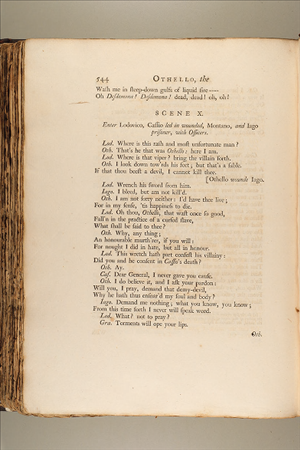 544 OTHELLO, the
Wash me in steep-down gulfs of liquid fire----
Oh Desdemona! Desdemona! dead, dead! oh, oh!
SCENE X.
Enter Lodovico, Cassio led in wounded, Montano, and Iago
prisoner, with Officers.
Lod. Where is this rash and most unfortunate man?
Oth. That's he that was Othello: here I am.
Lod. Where is that viper? bring the villain forth.
Oth. I look down tow'rds his feet; but that's a fable.
If that thou beest a devil, I cannot kill thee.
[Othello wounds Iago.
Lod. Wrench his sword from him.
Iago. I bleed, but am not kill'd.
Oth. I am not sorry neither: I'd have thee live;
For in my sense, 'tis happiness to die.
Lod. Oh thou, Othello, that wast once so good,
Fall'n in the practice of a cursed slave,
What shall be said to thee?
Oth. Why, any thing;
An honourable murth'rer, if you will:
For nought I did in hate, but all in honour.
Lod. This wretch hath part confest his villainy:
Did you and he consent in Cassio's death?
Oth. Ay.
Cas. Dear General, I never gave you cause.
Oth. I do believe it, and I ask your pardon:
Will you, I pray, demand that demy-devil,
Why he hath thus ensnar'd my soul and body?
Iago. Demand me nothing; what you know, you know;
From this time forth I never will speak word.
Lod. What? not to pray?
Gra. Torments will ope your lips.
Oth.